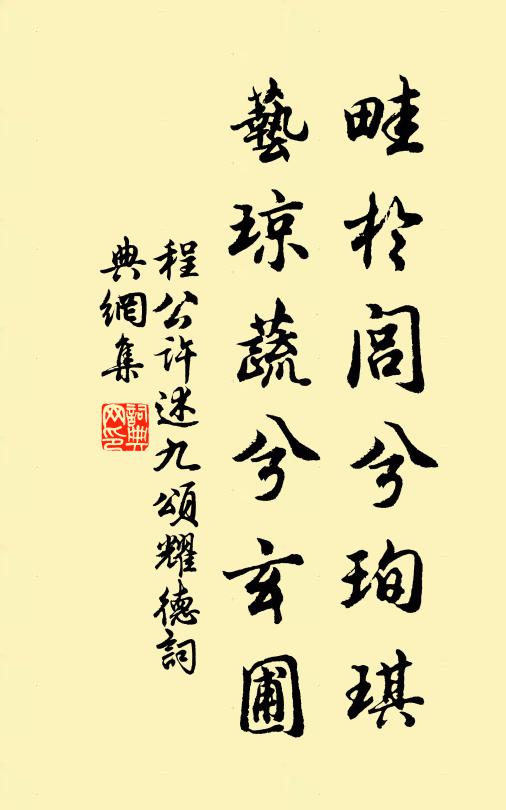 畦於閭兮珣琪
藝琼蔬兮玄圃
程公许述九頌耀德詞
典網集
詞典网印